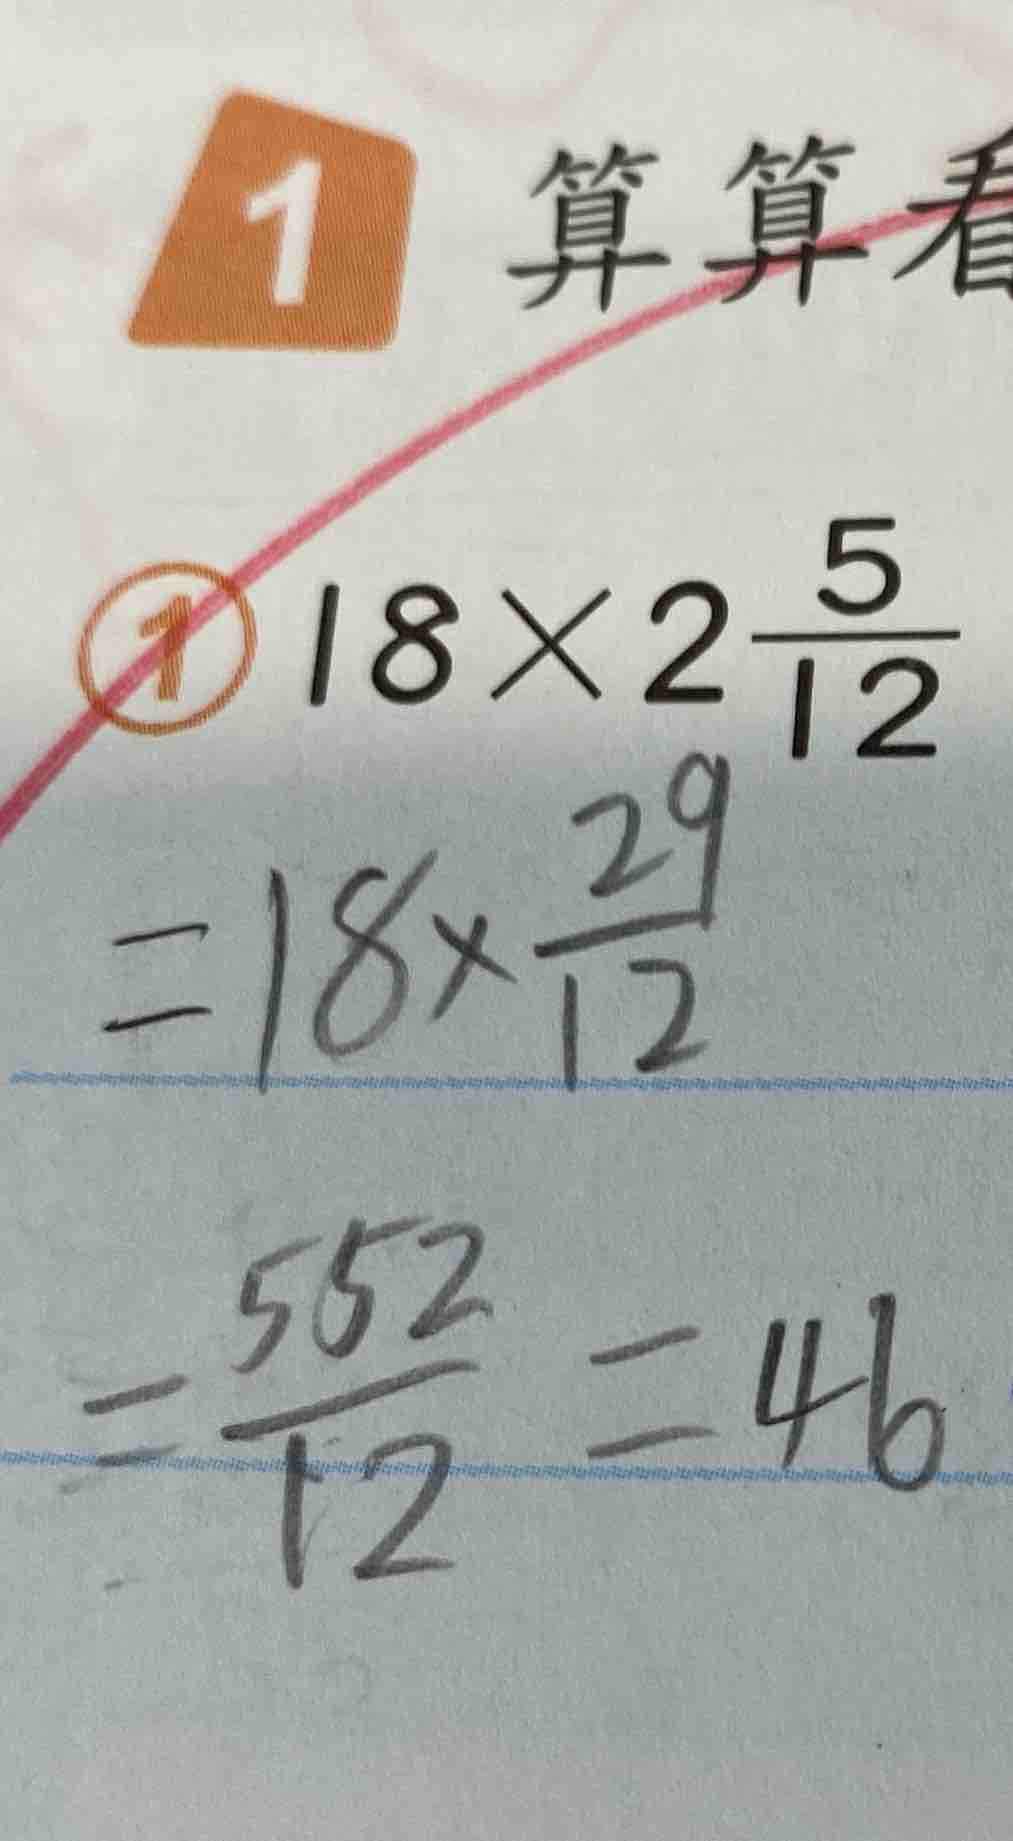 1 算算看
① 18×2 5/12
=18×29/12
=552/12=46